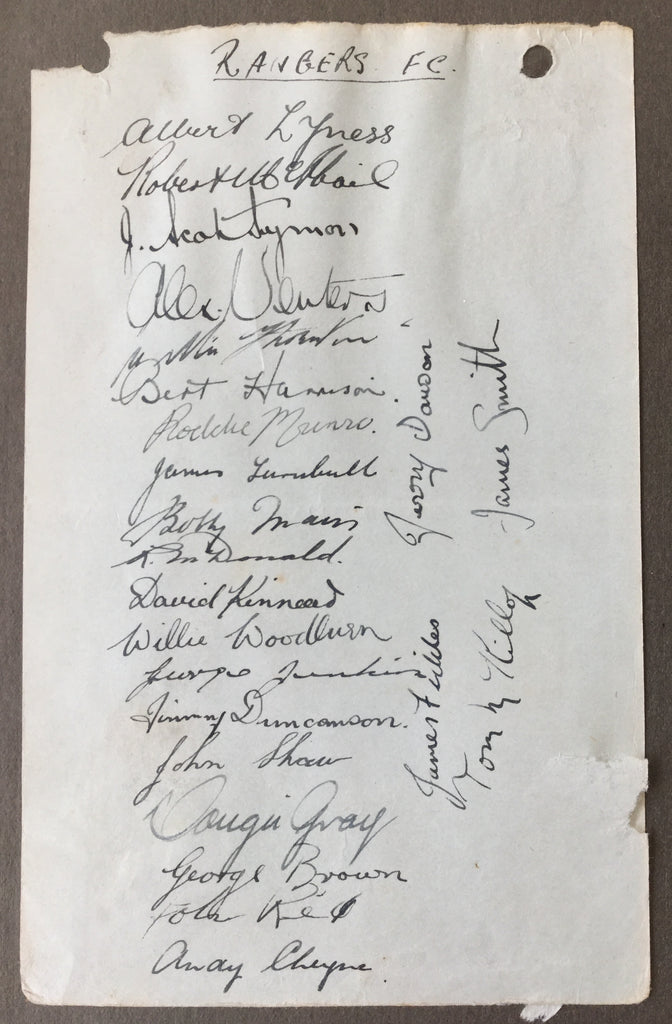 RANGERS FC.
Albert Lyness
Robert McPhail
J. Scot Symon
Alex. Venters
Willie Thornton
Bert Harrison.
Roddie Munro.
James Turnbull
Bobby Main
K. McDonald.
David Kinnear
Willie Woodburn
George Jenkins
Jimmy Duncanson.
John Shaw
Dougie Gray
George Brown
John
Andy Cheyne.
Jerry Dawson
James Fiddes
James Smith
Tom McKillop